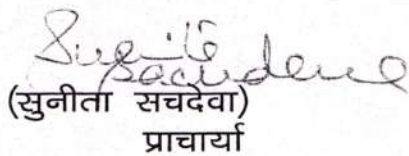 Sunita
Sachdeva
(सुनीता सचदेवा)
प्राचार्या